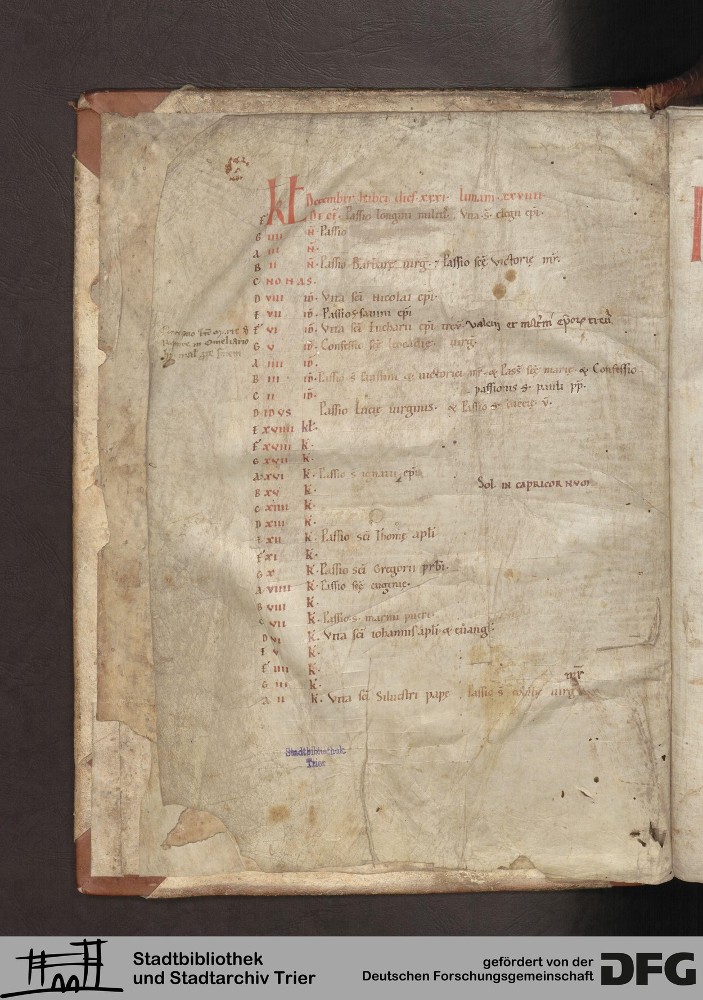 KL December habet dies xxxi. lunam. xxviiii.
F Pr ei. Passio longini milit. Vita s. eligii epi.
G iiii N. Passio
A iii N.
B ii N. Passio Barbare uirg. ⁊ Passio scę Victorię mr.
C NONAS.
D VIII id. Vita sci Nicolai epi.
E VII id. Passio s sauini epi
F VI id. Vita sci Eucharii epi treu. Valerii et epor treu.
G V id. Confessio scę leocadię uirg.
A IIII id.
B III id. Passio s. & uictorici mr. & Pass scę marię. & Confessio
C II id. passionis s. pauli
D IDVS Passio Lucię uirginis. & Passio s. v.
E XVIIII kł.
F XVIII k.
G XVII k.
A XVI k. Passio s ignatii epi
B XV k. Sol in capricornum
C XIIII k.
D XIII k.
E XII k. Passio sci Thomę apli
F XI k.
G X k. Passio sci Gregorii prbi.
A VIIII k. Passio scę eugenię.
B VIII k.
C VII k. Passio s. marini pueri.
D VI k. Vita sci iohannis apli & euang.
E V k.
F IIII k.
G III k.
mr
A II k. Vita sci Siluestri pape Passio s uirg
Stadtbibliothek
Trier
Stadtbibliothek
und Stadtarchiv Trier
gefördert von der
Deutschen Forschungsgemeinschaft
DFG